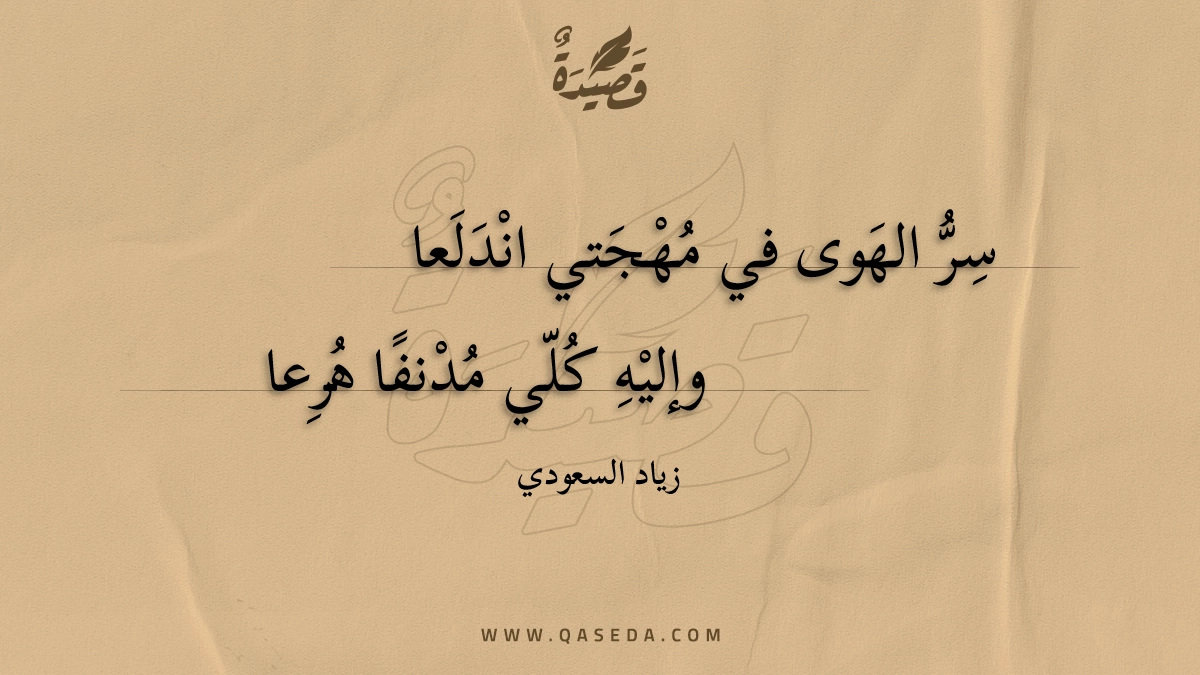 قَصِيدَةٌ
سِرُّ الهَوى في مُهْجَتي انْدَلَعا
وإليْهِ كُلّي مُدْنفًا هُرِعا
زياد السعودي
WWW.QASEDA.COM